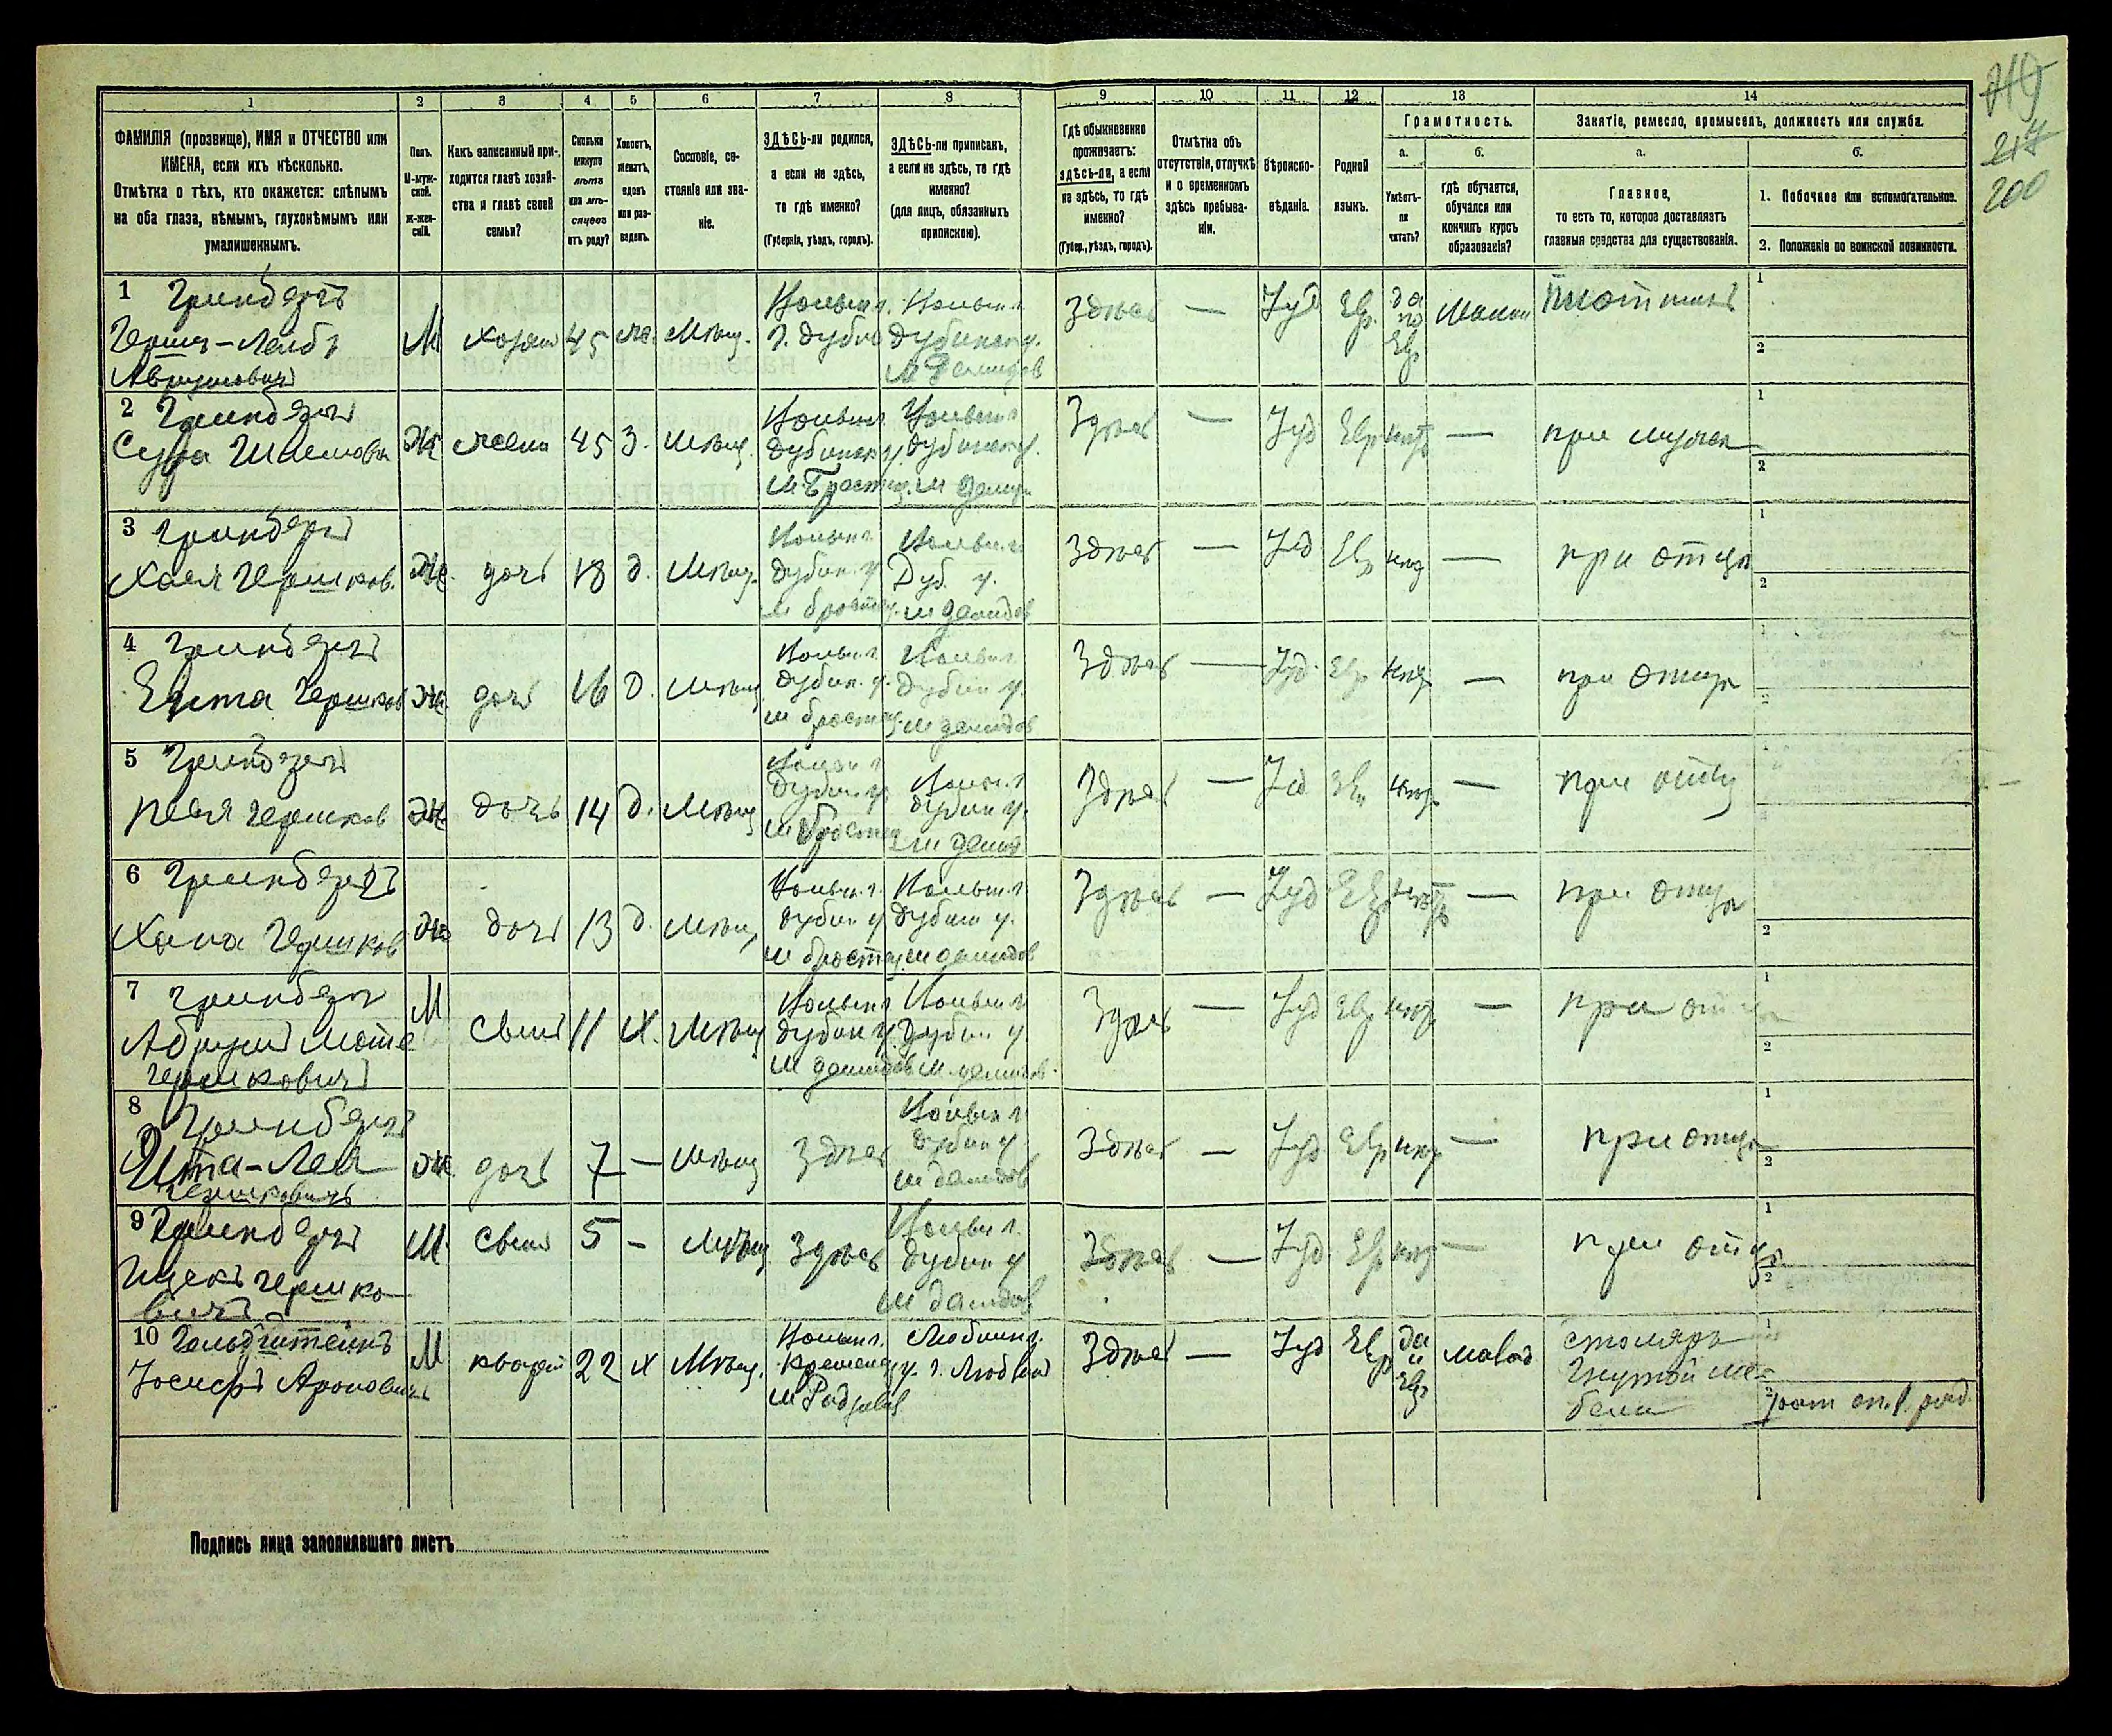 740
217
200
1 2 3 4 5 6 7 8 9 10 11 12 13 14
ФАМИЛІЯ (прозвище), ИМЯ и ОТЧЕСТВО или
ИМЕНА, если ихъ нѣсколько.
Отмѣтка о тѣхъ, кто окажется: слѣпымъ
на оба глаза, нѣмымъ, глухонѣмымъ или
умалишеннымъ.
Полъ.
М-муж-
ской.
Ж-жен-
скій.
Какъ записанный при-
ходится главѣ хозяй-
ства и главѣ своей
семьи?
Сколько
минуло
лѣтъ
или мѣ-
сяцевъ
отъ роду?
Холостъ,
женатъ,
вдовъ
или раз-
веденъ.
Сословіе, со-
стояніе или зва-
ніе.
ЗДѢСЬ-ли родился,
а если не здѣсь,
то гдѣ именно?
(Губернія, уѣздъ, городъ).
ЗДѢСЬ-ли приписанъ,
а если не здѣсь, то гдѣ
именно?
(для лицъ, обязанныхъ
припискою).
Гдѣ обыкновенно
проживаетъ:
здѣсь-ли, а если
не здѣсь, то гдѣ
именно?
(Губер., уѣздъ, городъ).
Отмѣтка объ
отсутствіи, отлучкѣ
и о временномъ
здѣсь пребыва-
ніи.
Вѣроиспо-
вѣданіе.
Родной
языкъ.
Грамотность.
а.
Умѣетъ-
ли
читать?
б.
гдѣ обучается,
обучался или
кончилъ курсъ
образованія?
Занятіе, ремесло, промыселъ, должность или служба.
а.
Главное,
то есть то, которое доставляетъ
главныя средства для существованія.
б.
1. Побочное или вспомогательное.
2. Положеніе по воинской повинности.
1 Гринбергъ
Гершъ-Лейбъ
Аврумовичъ
М хозяин 45 же. Мѣщ.
Волын г.
г. Дубно
Волын г
Дубинск у.
м Демидов
Здѣсь — Іуд Евр.
да
по
Евр
плотникъ
2 Гринбергъ
Сура Шлемова Ж жена 45 З. мѣщ.
Волын г
Дубинск у.
Волын г
Дубинск у.
м Демид
Здѣсь — Іуд Евр нѣтъ — при мужѣ
3 Гринбергъ
Хая Гершков. Ж. дочь 18 д. Мѣщ.
Волын г
Дубин. у
Волын г
Дуб. у.
м Демидов
Здѣсь — Іуд Евр нѣт — при отцѣ
4 Гринбергъ
Ента Гершков Ж. дочь 16 д. Мѣщ
Волын г
Дубин. у.
Волын г
Дубин у.
м Демидов
Здѣсь — Іуд. Евр нѣт — при отцѣ
5 Гринбергъ
Песя Гершков Ж дочь 14 д. Мѣщ
Волын г
Дубин. у
Волын г
Дубин у.
м Демид
Здѣсь — Іуд Евр нѣт — при отцѣ
6 Гринбергъ
Хана Гершков Ж дочь 13 д. Мѣщ
Волын г.
Дубин у
Волын г
Дубин у.
м Демидов
Здѣсь — Іуд Евр нѣтъ — при отцѣ
7 Гринберг
Аврум Моте
Гершковичъ
М сынъ 11 х. Мѣщ
Волын г
Дубин у.
м Демидов
Волын г
Дубин у.
м. Демидов
Здѣсь — Іуд Евр нѣт — при отцѣ
8 Гринбергъ
Ита-Лея
Гершковичъ
Ж. дочь 7 — Мѣщ Здѣсь
Волын г
Дубин у
м Демидов
Здѣсь — Іуд Евр нѣт — при отцѣ
9 Гринбергъ
Ицекъ Гершко-
вичъ
М. сынъ 5 — Мѣщ Здѣсь
Волын г.
Дубин у
м Демидов
Здѣсь — Іуд Евр нѣт — при отцѣ
10 Гольдштейнъ
Іосифъ Ароновичъ
М кварти 22 х Мѣщ.
Волын г.
Кременец у.
м Радзивил
Люблин г.
г. Люблин
Здѣсь — Іуд Евр
да
и
Евр
столяръ
гнутой ме-
бели
Подпись лица заполнявшаго листъ